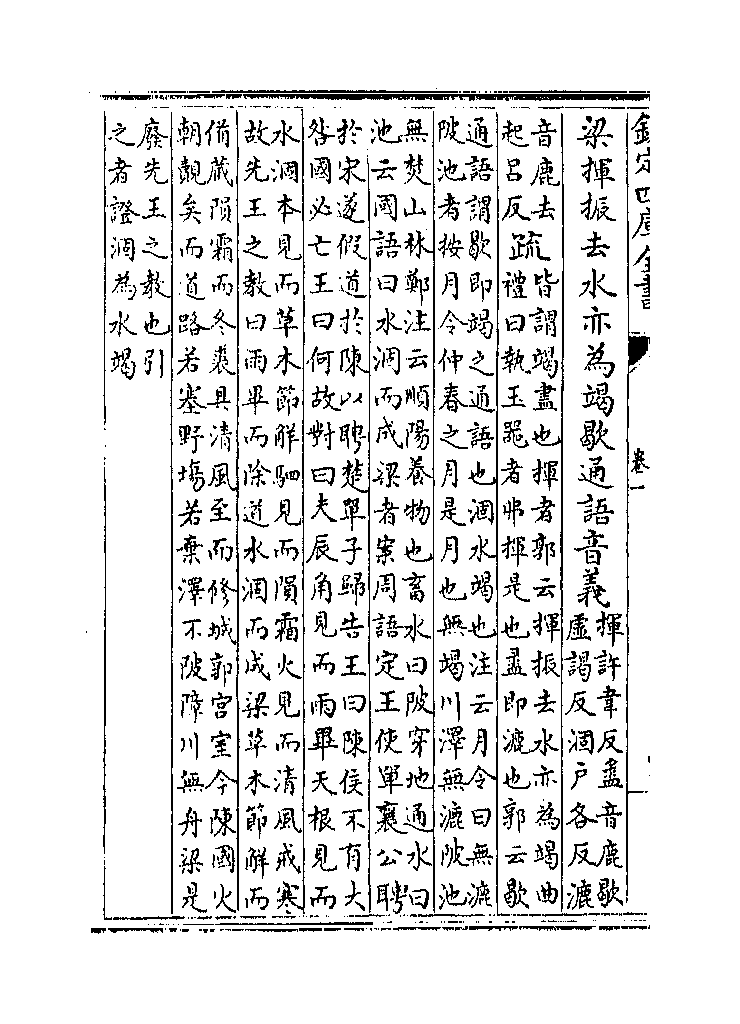 欽定四庫全書
卷一
梁揮振去水亦為竭歇通語音義
揮許韋反盝音鹿歇
虛謁反涸户各反漉
音鹿去
起呂反
疏
皆謂竭盡也揮者郭云揮振去水亦為竭曲
禮曰執玉器者弗揮是也盝即漉也郭云歇
通語謂歇即竭之通語也涸水竭也注云月令曰無漉
陂池者按月令仲春之月是月也無竭川澤無漉陂池
無焚山林鄭注云順陽養物也畜水曰陂穿地通水曰
池云國語曰水涸而成梁者案周語定王使單襄公聘
於宋遂假道於陳以聘楚單子歸告王曰陳侯不有大
咎國必亡王曰何故對曰夫辰角見而雨畢天根見而
水涸本見而草木節解駟見而隕霜火見而清風戒寒
故先王之教曰雨畢而除道水涸而成梁草木節解而
備蔵隕霜而冬裘具清風至而修城郭宫室今陳國火
朝覿矣而道路若塞野塲若棄澤不陂障川無舟梁是
廢先王之教也引
之者證涸為水竭